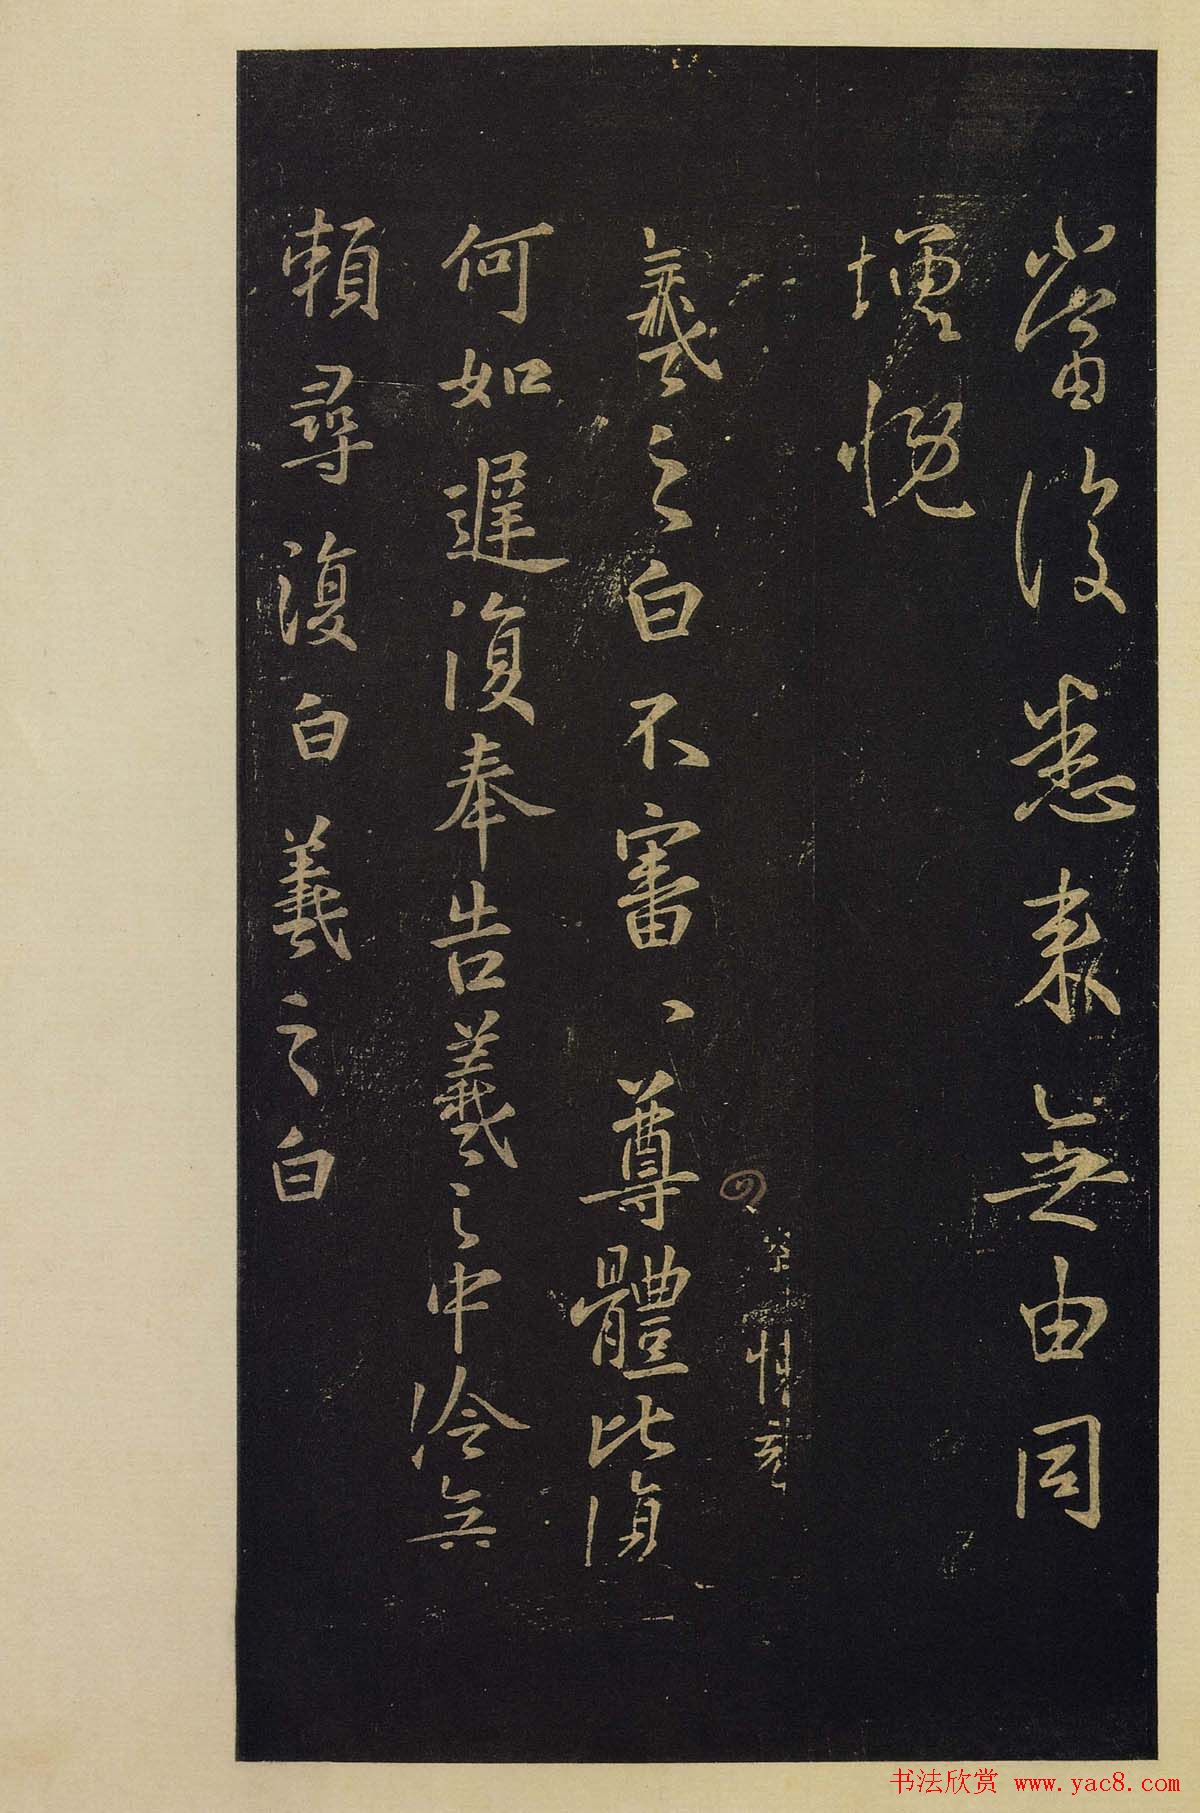 當復悉來無由同
增慨
羲之白不審、尊體比復
何如遲復奉告羲之中冷無
賴尋復白羲之白
书法欣赏 www.yac8.com